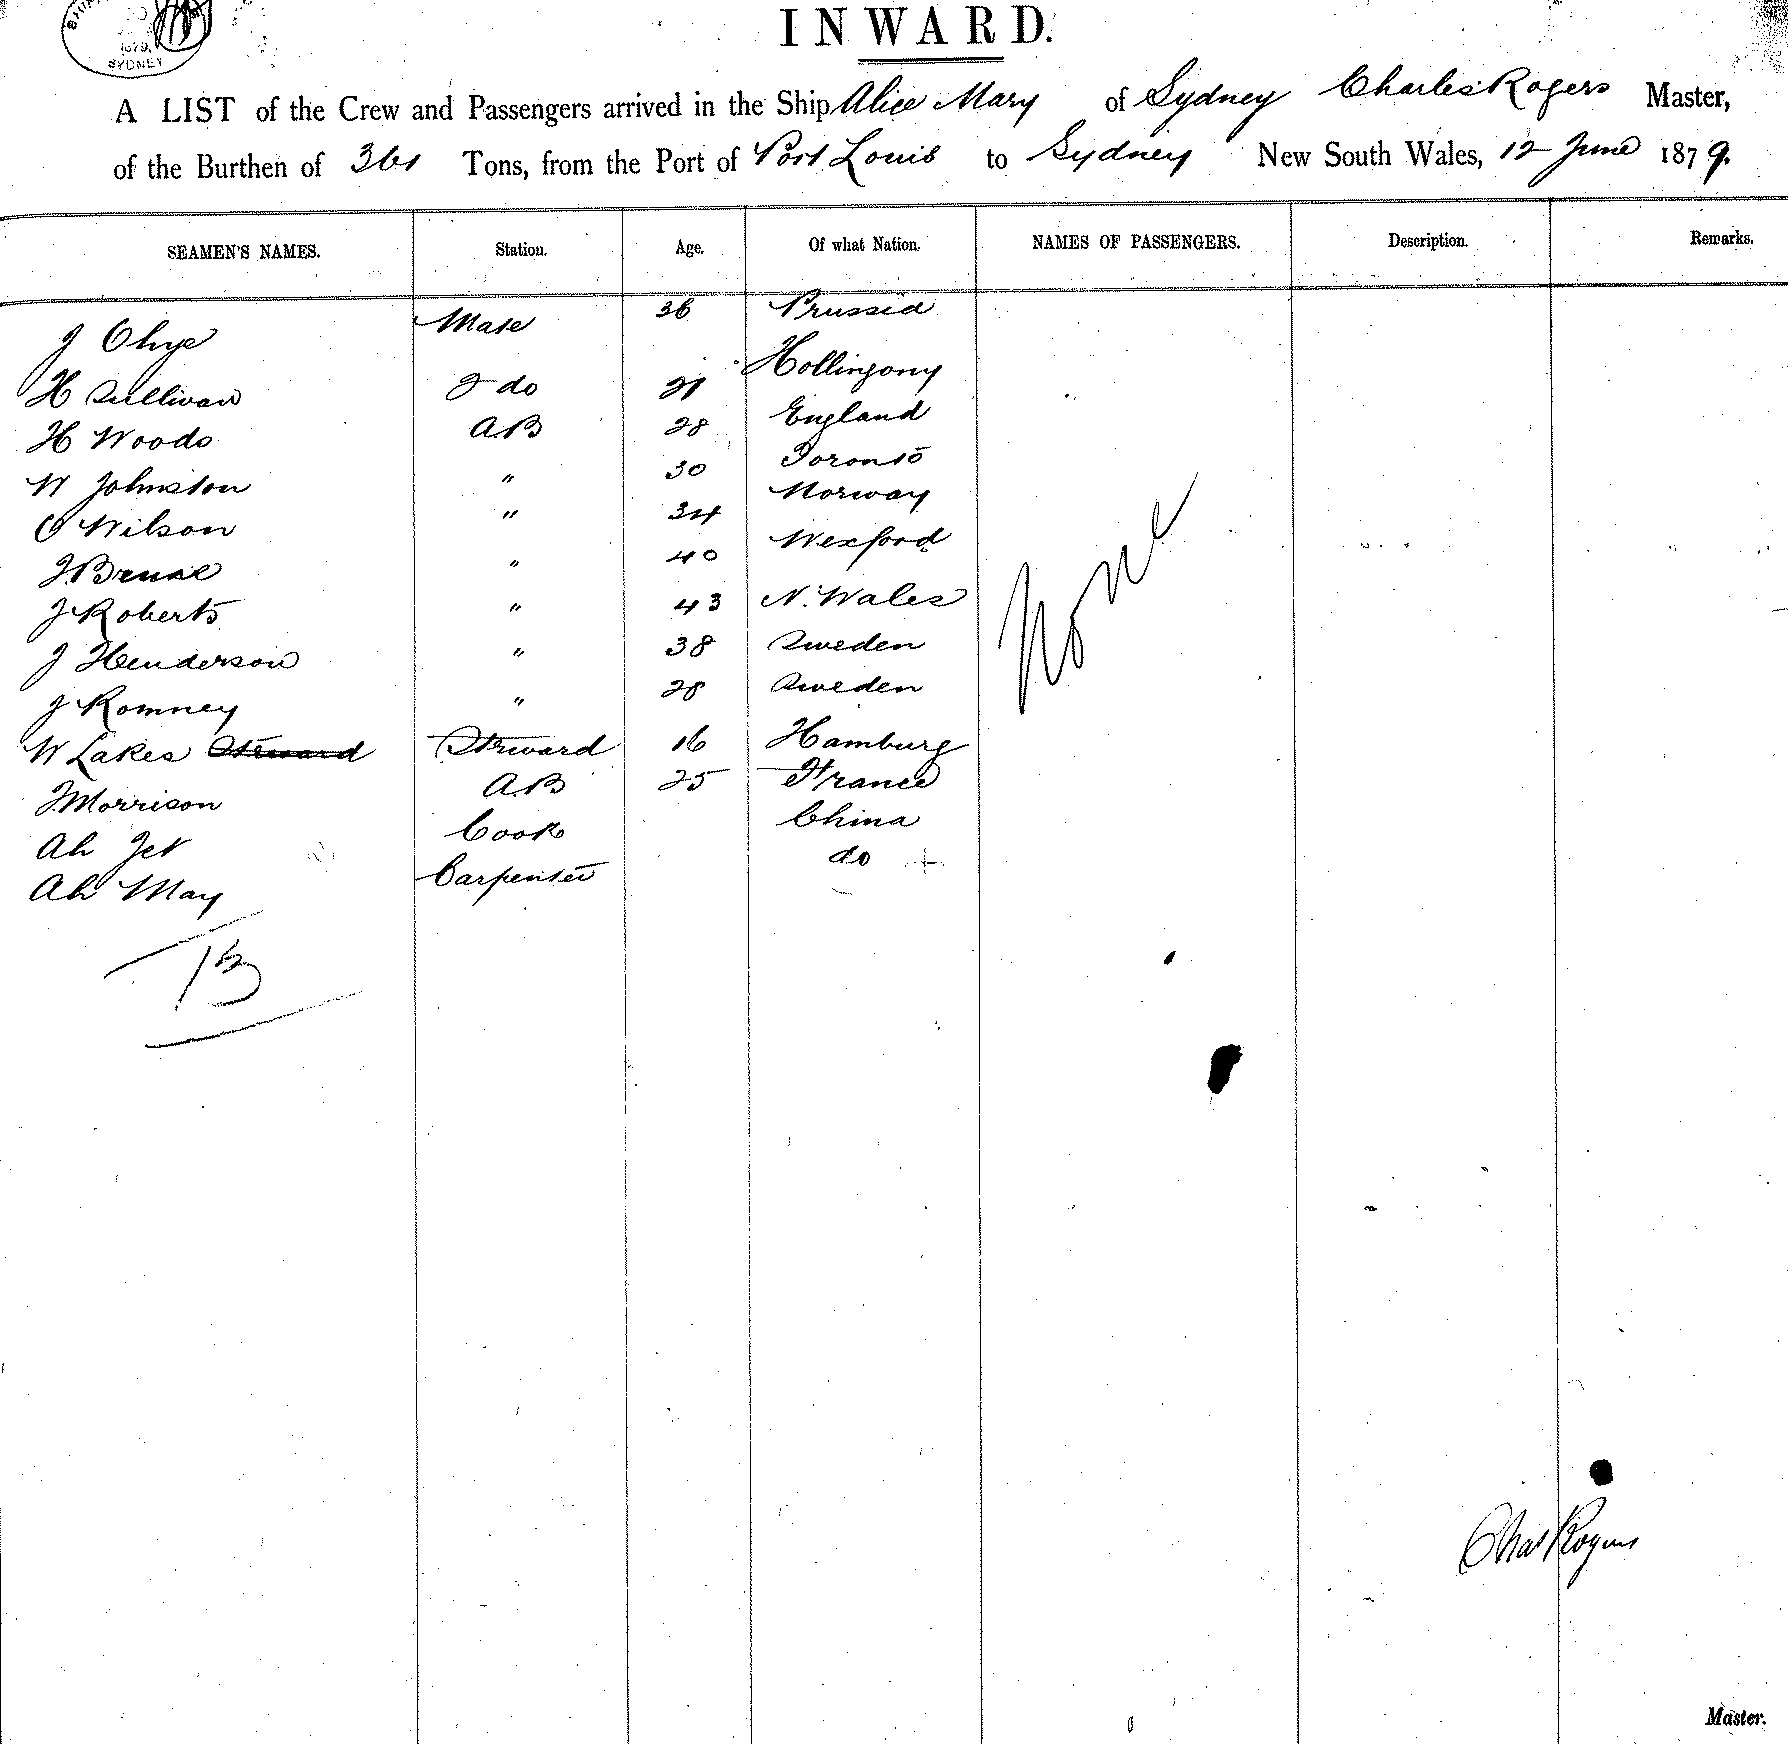 1879.
SYDNEY
INWARD.
A LIST of the Crew and Passengers arrived in the Ship Alice Mary of Sydney Charles Rogers Master,
of the Burthen of 361 Tons, from the Port of Port Louis to Sydney New South Wales, 12 June 1879.
SEAMEN'S NAMES. Station. Age. Of what Nation. NAMES OF PASSENGERS. Description. Remarks.
J Mate 36 Prussia
H Sullivan 2 do 21
H Woods AB 28 England
W Johnston " 30 Toronto
O Wilson " 34 Norway
J " 40 Wexford
J Roberts " 43 N. Wales
J Henderson " 38 Sweden
J Romney " 28 Sweden
W Lakes Steward Steward 16 Hamburg
J Morrison AB 25 France
Ah Cook China
Ah May Carpenter do
None
13
Chas Rogers
Master.